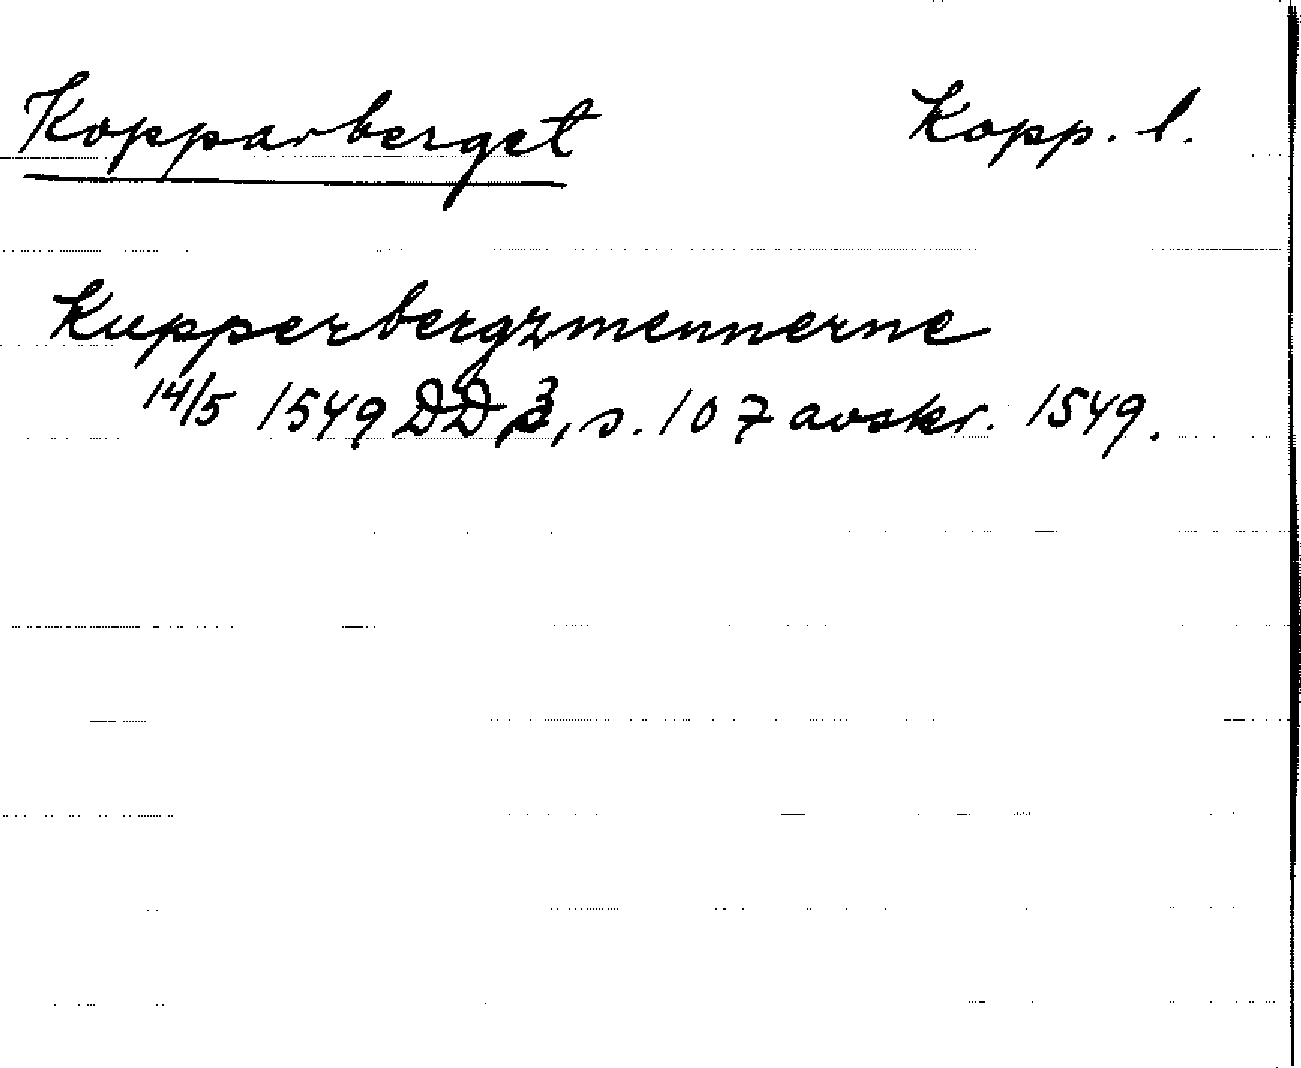 Kopparberget Kopp. l.
Kupperbergzmennerne
14/5 1549 DD 3, s. 107 avskr. 1549.